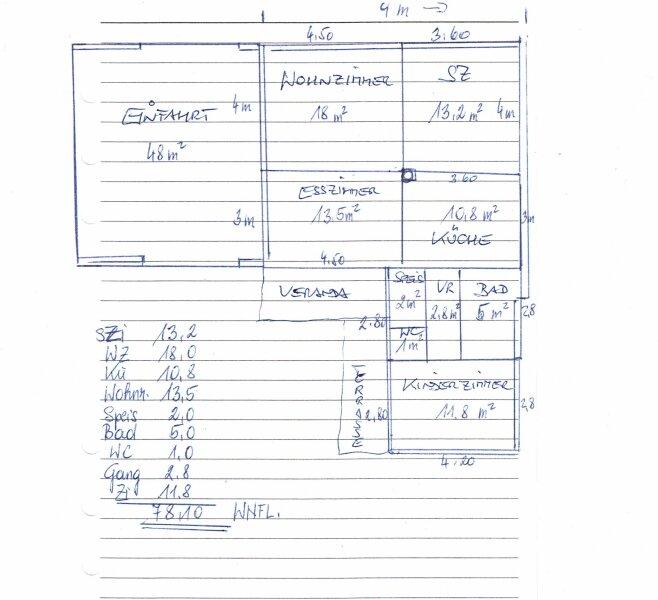 9 m →
4.50 3.60
WOHNZIMMER SZ
EINFAHRT 4m 18 m² 13,2 m² 4m
48 m²
ESSZIMMER 3.60
3m 13.5m² 10,8 m² 3m
KÜCHE
4.50
SPEIS VR BAD
VERANDA 2m² 2,8m² 5 m² 2,8
2.80
WC
1m²
TERRASSE
KINDERZIMMER
2,80 11.8 m² 2,8
4,20
SZi 13,2
WZ 18,0
Kü 10,8
Wohnr. 13,5
Speis 2,0
Bad 5,0
WC 1,0
Gang 2.8
Zi 11.8
78,10 WNFL.